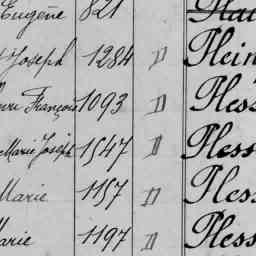 Eugène 821
Joseph 1284 D Plein
François 1093 D Pless
Marie Joseph 1547 D Pless
Marie 1157 D Pless
Marie 1197 D Pless